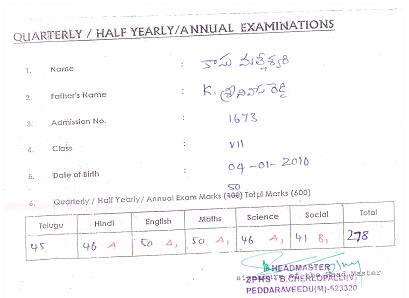 QUARTERLY / HALF YEARLY/ANNUAL EXAMINATIONS
1. Name : కాసు మల్లేశ్వరి
2. Father's Name : K. శ్రీనివాస రెడ్డి
3. Admission No. : 1673
4. Class : VII
5. Date of Birth : 04-01-2010
50
6. Quarterly / Half Yearly/ Annual Exam Marks (100) Total Marks (600)
Telugu Hindi English Maths Science Social Total
45 46 A 50 A1 50 A1 46 A1 41 B1 278
HEADMASTER
ZPHS - B.CHERLOPALLI(V)
PEDDARAVEEDU(M)-523320